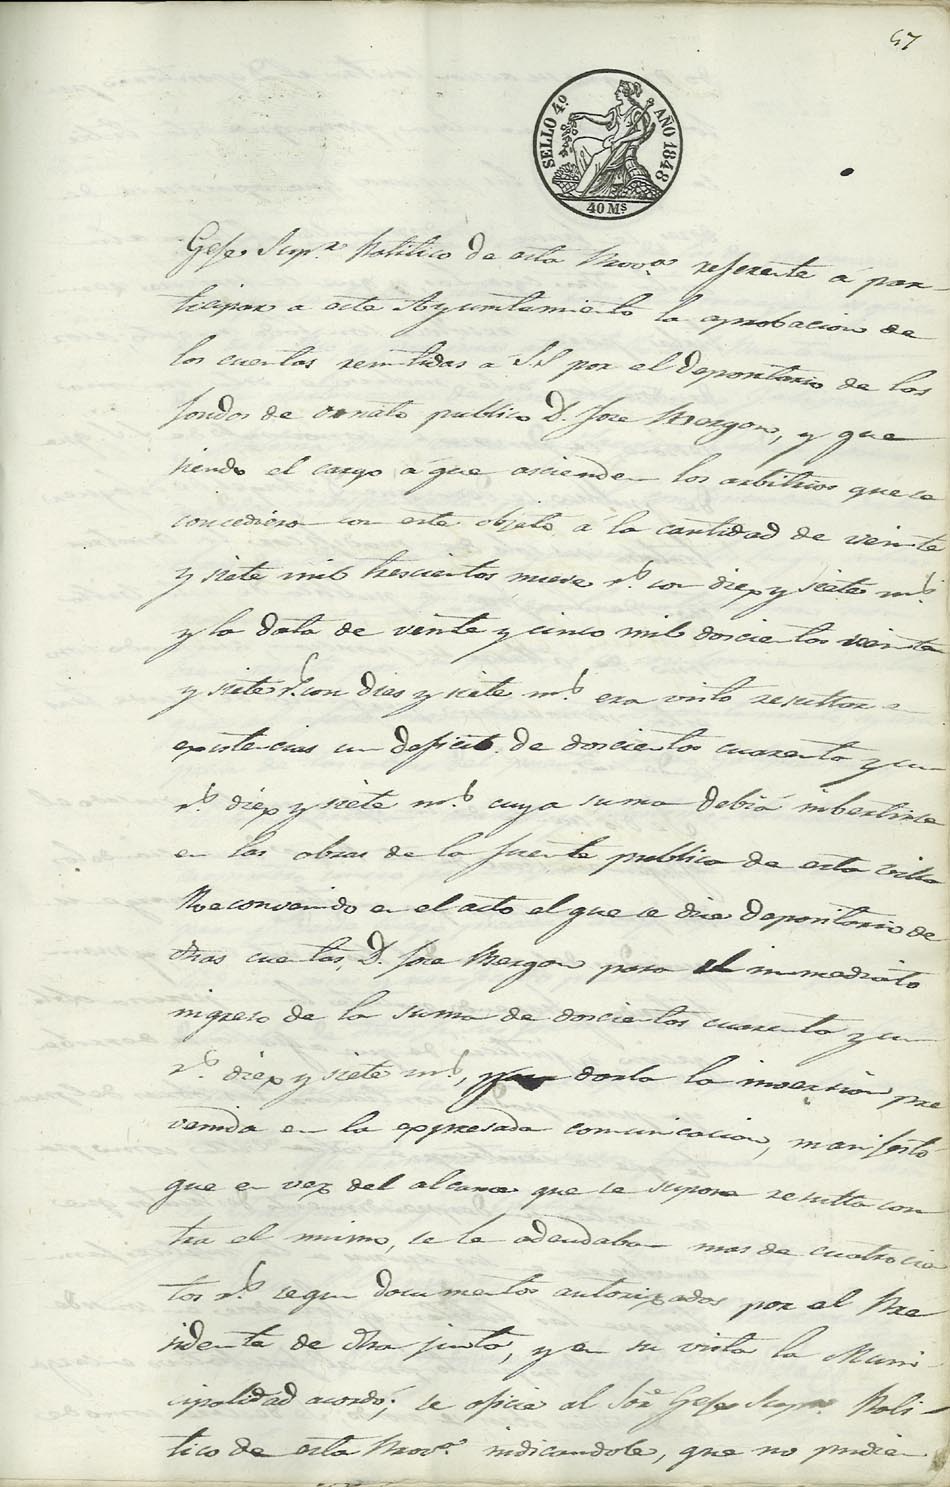 57
SELLO 4º AÑO 1848
40 Ms
Gefe Supr. Politico de esta Prova. referente á par-
ticipar a este Ayuntamiento la aprobacion de
las cuentas remitidas a S.S por el Depositario de los
fondos de ornato publico D. Jose Mergon, y que
siendo el cargo a que asciende los arbitrios que se
concediero con este objeto a la cantidad de veinte
y siete mil trescientos nueve rs. con diez y siete ms.
y la data de veinte y cinco mil doscientos veinte
y siete rs. con dies y siete ms. era visto resultar
existencias un deficit de doscientos cuarenta y un
rs. diez y siete ms. cuya suma debia imbertirse
en las obras de la fuente publica de esta Villa
Reconvenido en el acto el que se dice Depositario de
dhas cuentas, D. Jose Mergon para el immediato
ingreso de la suma de doscientos cuarenta y un
rs. diez y siete ms., darla la insercion pre
venida en la expresada comunicacion, manifestó
que en vez del alcance que se supone resulta con
tra el mismo, se le adeudaban mas de cuatrocien
tos rs. segun documentos autorizados por el Pre
sidente de dha junta, y en su vista la Muni
cipalidad acordó; se oficie al Sor. Gefe Supr. Poli
tico de esta Prova. indicandole, que no pudien